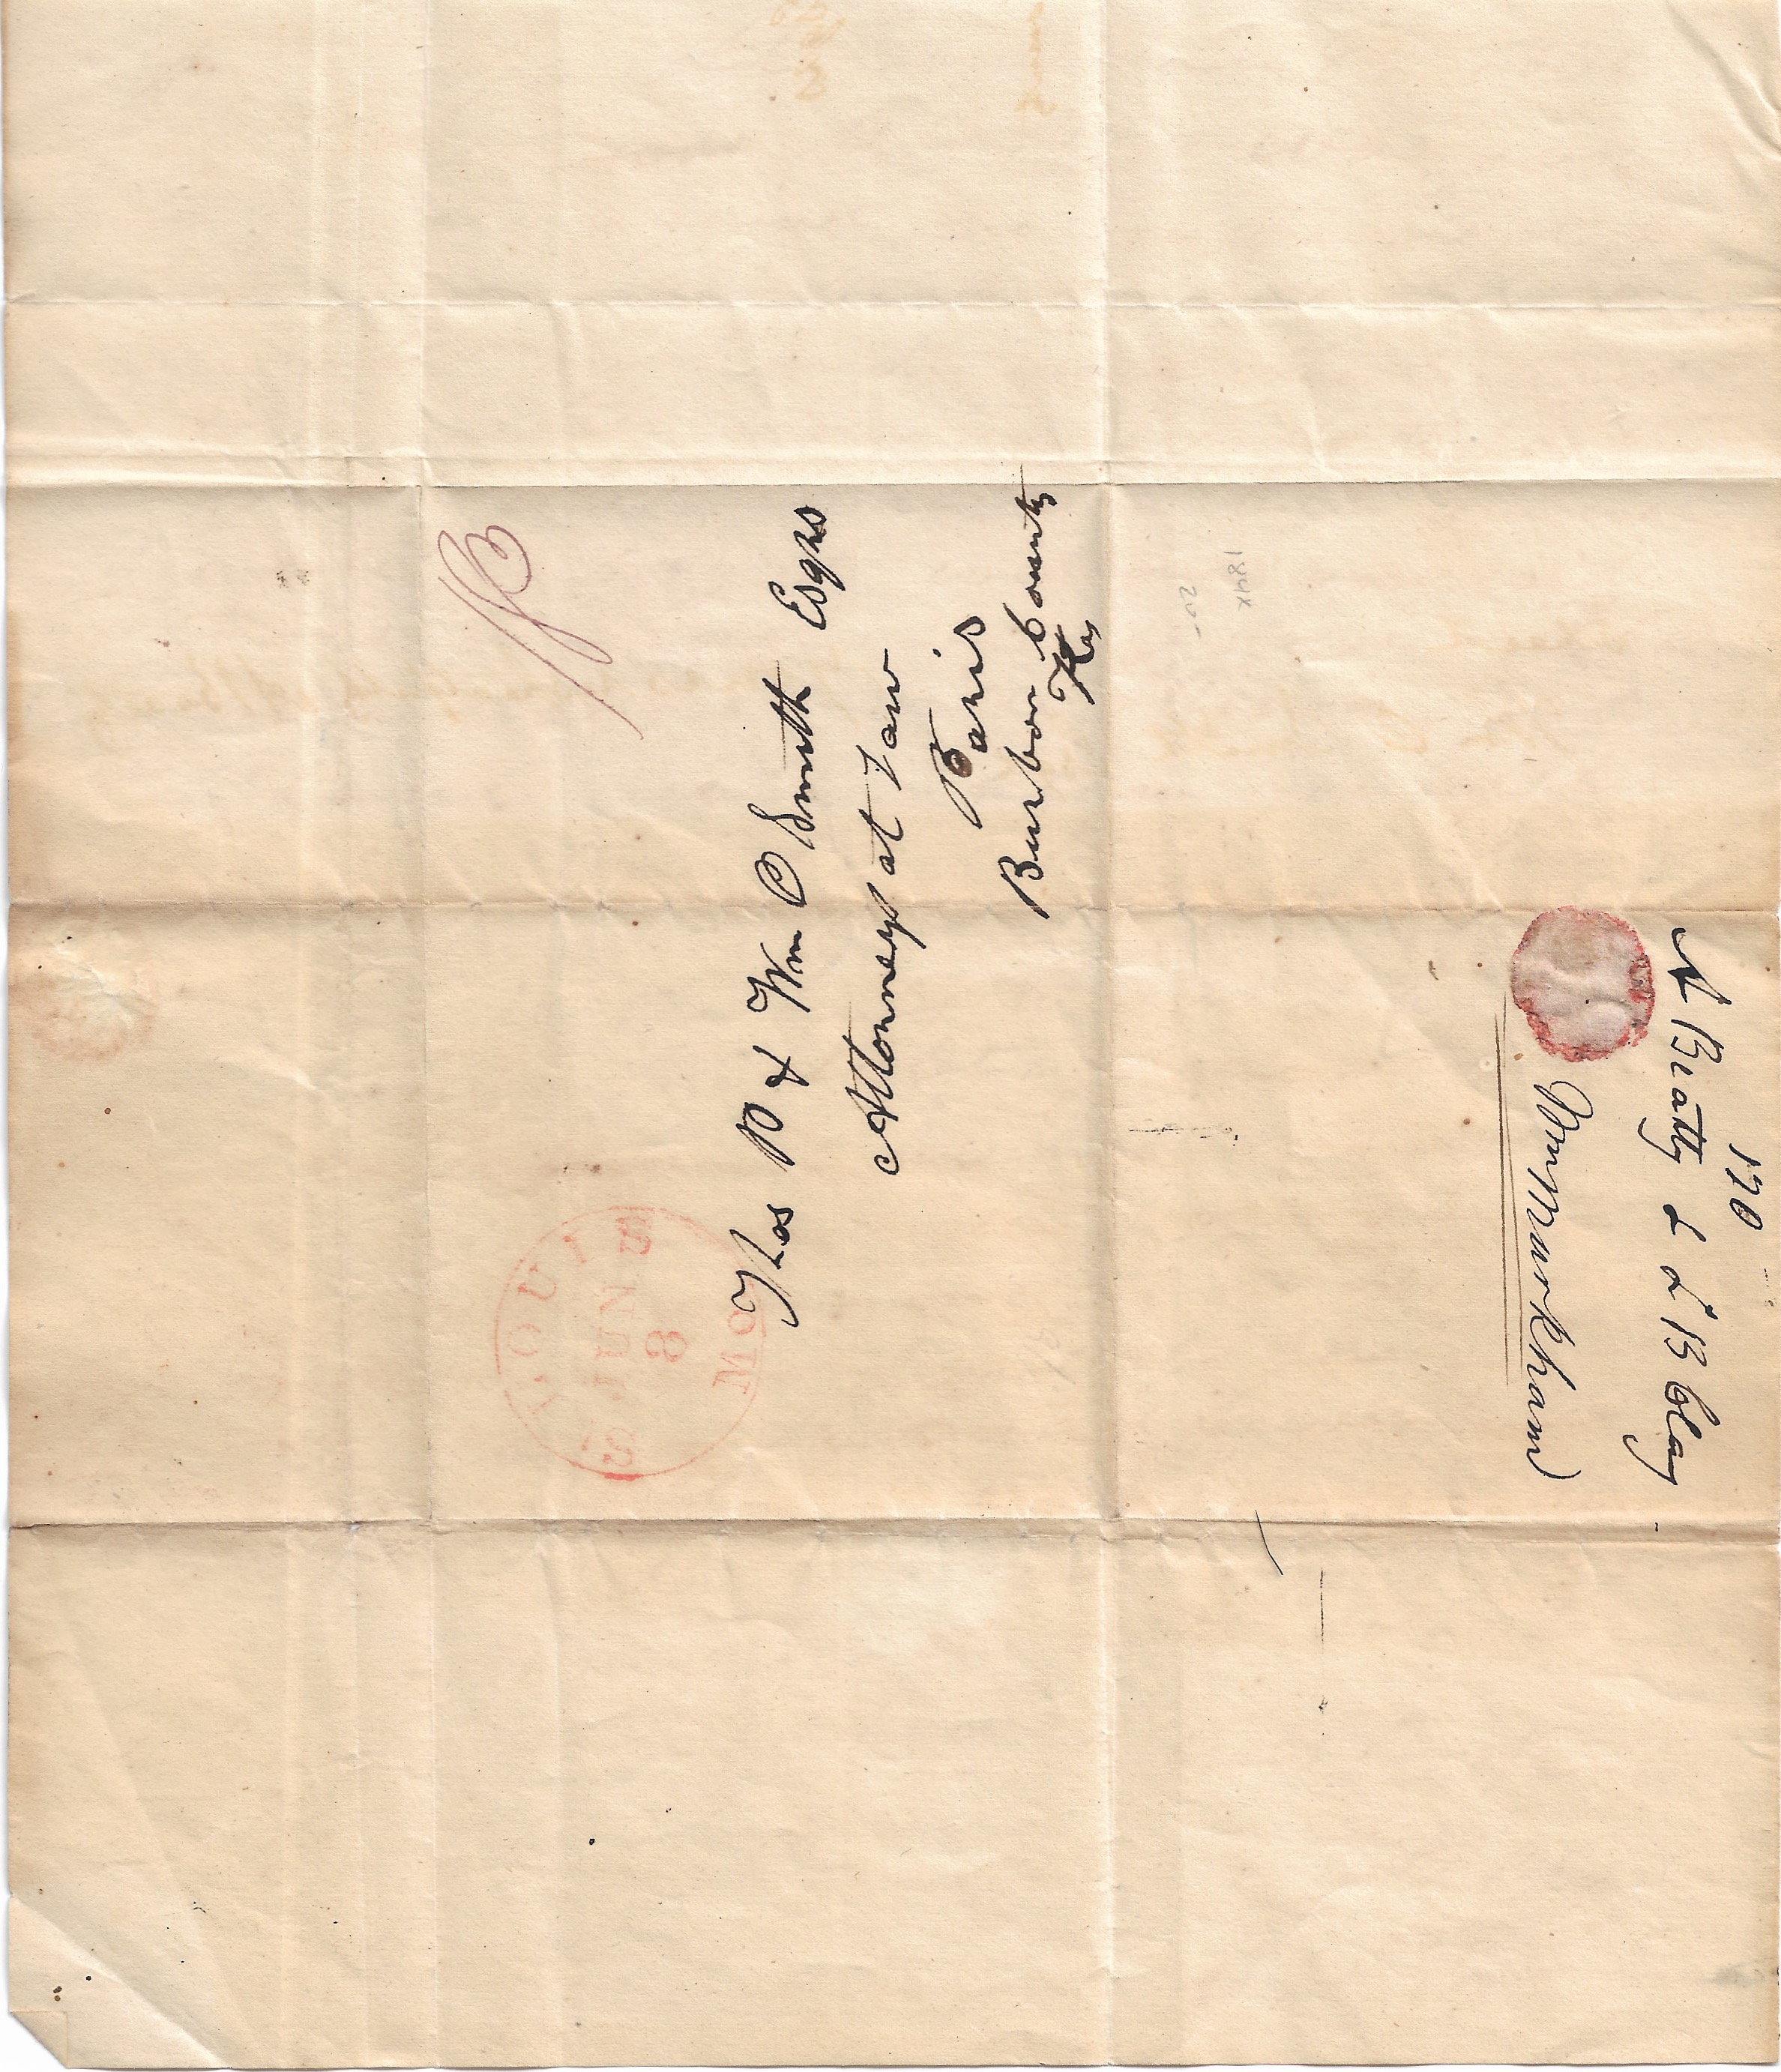 Thos P & Wm C Smith Esqrs
Attorneys at Law
Paris
Burbon County
Ky
ST. LOUIS
JUNE
8
MO
170
A Beatty & L B Clay
Wm Markham
184X
20-